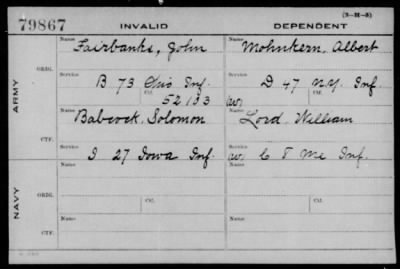 79867 INVALID DEPENDENT (3-21-8)
Name Name
Fairbanks, John Mohnkern, Albert
ARMY
ORIG.
Service Service
B 73 Ohio Inf. D 47 N.Y. Inf.
Ctf. Ctf.
52/133 (W)
Name Name
Babcock, Solomon Lord, William
CTF.
Service Service
I 27 Iowa Inf. (W) C 8 Me Inf.
NAVY
ORIG.
Name Name
Ctf. Ctf.
CTF.
Name Name